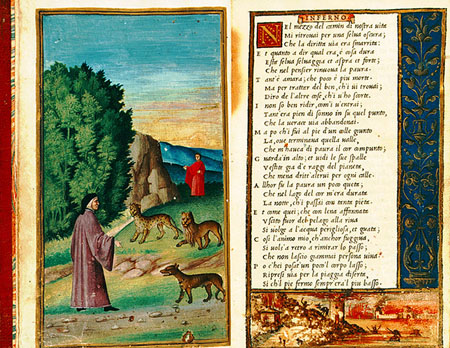 INFERNO
NEl mezzo del camin di nostra uita
Mi ritrouai per una selua oscura;
Che la diritta uia era smarrita:
Et quanto a dir qual era, è cosa dura
Esta selua seluaggia et aspra et forte;
Che nel pensier rinuoua la paura.
Tant'è amara; che poco è piu morte.
Ma per trattar del ben, ch'i ui trouai;
Diro de l'altre cose, ch'i u'ho scorte.
I non so ben ridir, com'i u'entrai;
Tant'era pien di sonno in su quel punto,
Che la uerace uia abbandonai.
Ma po ch'i fui al pie d'un colle giunto
La, oue terminaua quella ualle,
Che m'hauea di paura il cor compunto;
Guardai in alto; et uidi le sue spalle
Vestite gia de raggi del pianeta,
Che mena dritt'altrui per ogni calle.
Allhor fu la paura un poco queta;
Che nel lago del cor m'era durata
La notte, ch'i passai con tanta pieta.
Et come quei; che con lena affannata
Vscito fuor del pelago alla riua
Si uolge a l'acqua perigliosa, et guata;
Cosi l'animo mio, ch'anchor fuggiua,
Si uols'a retro a rimirar lo passo;
Che non lascio giammai persona uiua.
Po c'hei posat'un poco'l corpo lasso;
Ripresi uia per la piaggia diserta,
Si ch'l pie fermo sempr'era'l piu basso.